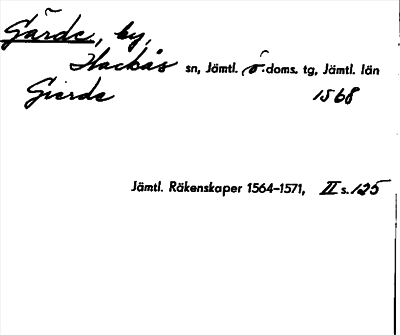 Gärde, by,
Hackås sn, Jämtl. ö. doms. tg, Jämtl. län
Gierde 1568
Jämtl. Räkenskaper 1564-1571, II s. 125